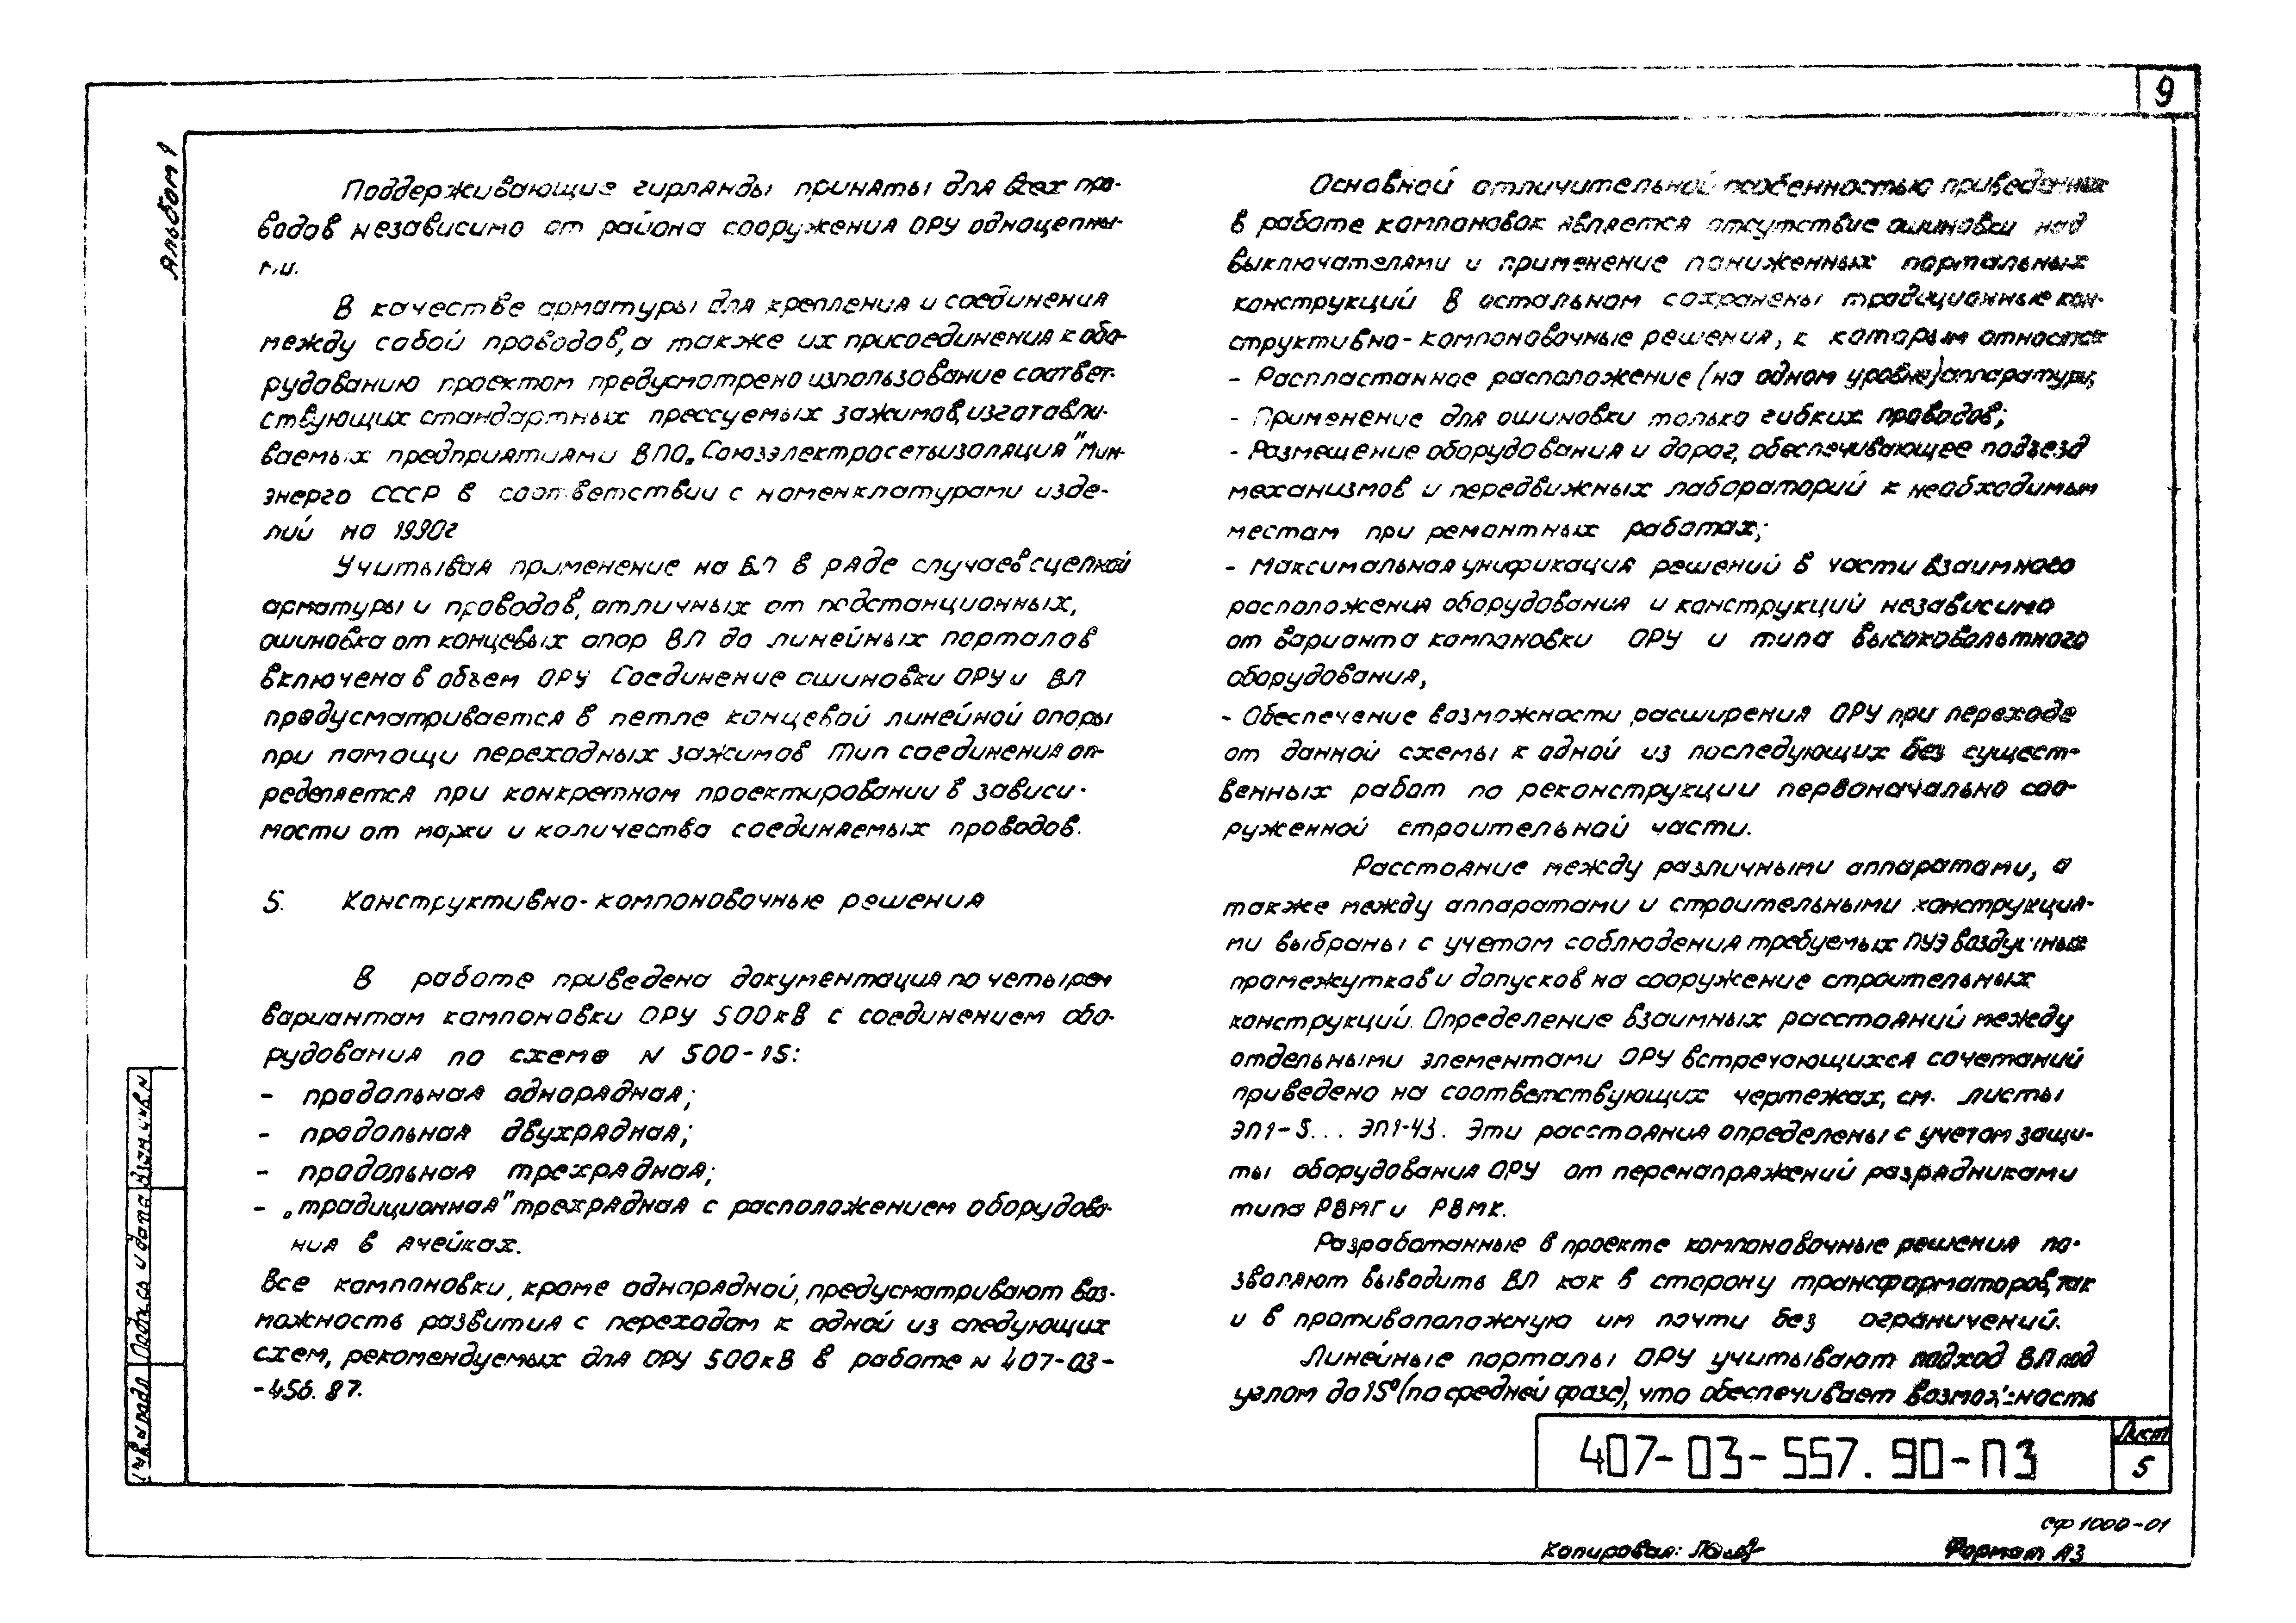 9
Альбом 1
Поддерживающие гирлянды приняты для всех про-
водов независимо от района сооружения ОРУ одноцепны-
ми.
В качестве арматуры для крепления и соединения
между собой проводов, а также их присоединения к обо-
рудованию проектом предусмотрено использование соответ-
ствующих стандартных прессуемых зажимов, изготавли-
ваемых предприятиями ВПО „Союзэлектросетьизоляция" Мин-
энерго СССР в соответствии с номенклатурами изде-
лий на 1990г
Учитывая применение на ВЛ в ряде случаев сцепной
арматуры и проводов, отличных от подстанционных,
ошиновка от концевых опор ВЛ до линейных порталов
включена в объем ОРУ Соединение ошиновки ОРУ и ВЛ
предусматривается в петле концевой линейной опоры
при помощи переходных зажимов Тип соединения оп-
ределяется при конкретном проектировании в зависи-
мости от марки и количества соединяемых проводов.
5. Конструктивно-компоновочные решения
В работе приведена документация по четырем
вариантам компоновки ОРУ 500кВ с соединением обо-
рудования по схеме N 500-15:
- продольная однорядная;
- продольная двухрядная;
- продольная трехрядная;
- „традиционная" трехрядная с расположением оборудова-
ния в ячейках.
Все компоновки, кроме однорядной, предусматривают воз-
можность развития с переходом к одной из следующих
схем, рекомендуемых для ОРУ 500кВ в работе N 407-03-
-456.87.
Основной отличительной особенностью приведенных
в работе компоновок является отсутствие ошиновки над
выключателями и применение пониженных портальных
конструкций В остальном сохранены традиционные кон-
структивно-компоновочные решения, к которым относятся
- Распластанное расположение (на одном уровне) аппаратуры;
- Применение для ошиновки только гибких проводов;
- Размещение оборудования и дорог, обеспечивающее подъезд
механизмов и передвижных лабораторий к необходимым
местам при ремонтных работах;
- Максимальная унификация решений в части взаимного
расположения оборудования и конструкций независимо
от варианта компоновки ОРУ и типа высоковольтного
оборудования,
- Обеспечение возможности расширения ОРУ при переходе
от данной схемы к одной из последующих без сущест-
венных работ по реконструкции первоначально соо-
руженной строительной части.
Расстояние между различными аппаратами, а
также между аппаратами и строительными конструкция-
ми выбраны с учетом соблюдения требуемых ПУЭ воздушных
промежутков и допусков на сооружение строительных
конструкций. Определение взаимных расстояний между
отдельными элементами ОРУ встречающихся сочетаний
приведено на соответствующих чертежах, см. листы
ЭП1-5... ЭП1-43. Эти расстояния определены с учетом защи-
ты оборудования ОРУ от перенапряжений разрядниками
типа РВМГ и РВМК.
Разработанные в проекте компоновочные решения по-
зволяют выводить ВЛ как в сторону трансформаторов, так
и в противоположную им почти без ограничений.
Линейные порталы ОРУ учитывают подход ВЛ под
углом до 15° (по средней фазе), что обеспечивает возможность
Инв N подл Подпись и дата Взам инв. N
407-03-557.90-ПЗ
Лист
5
СФ 1000-01
Копировал:
Формат А3